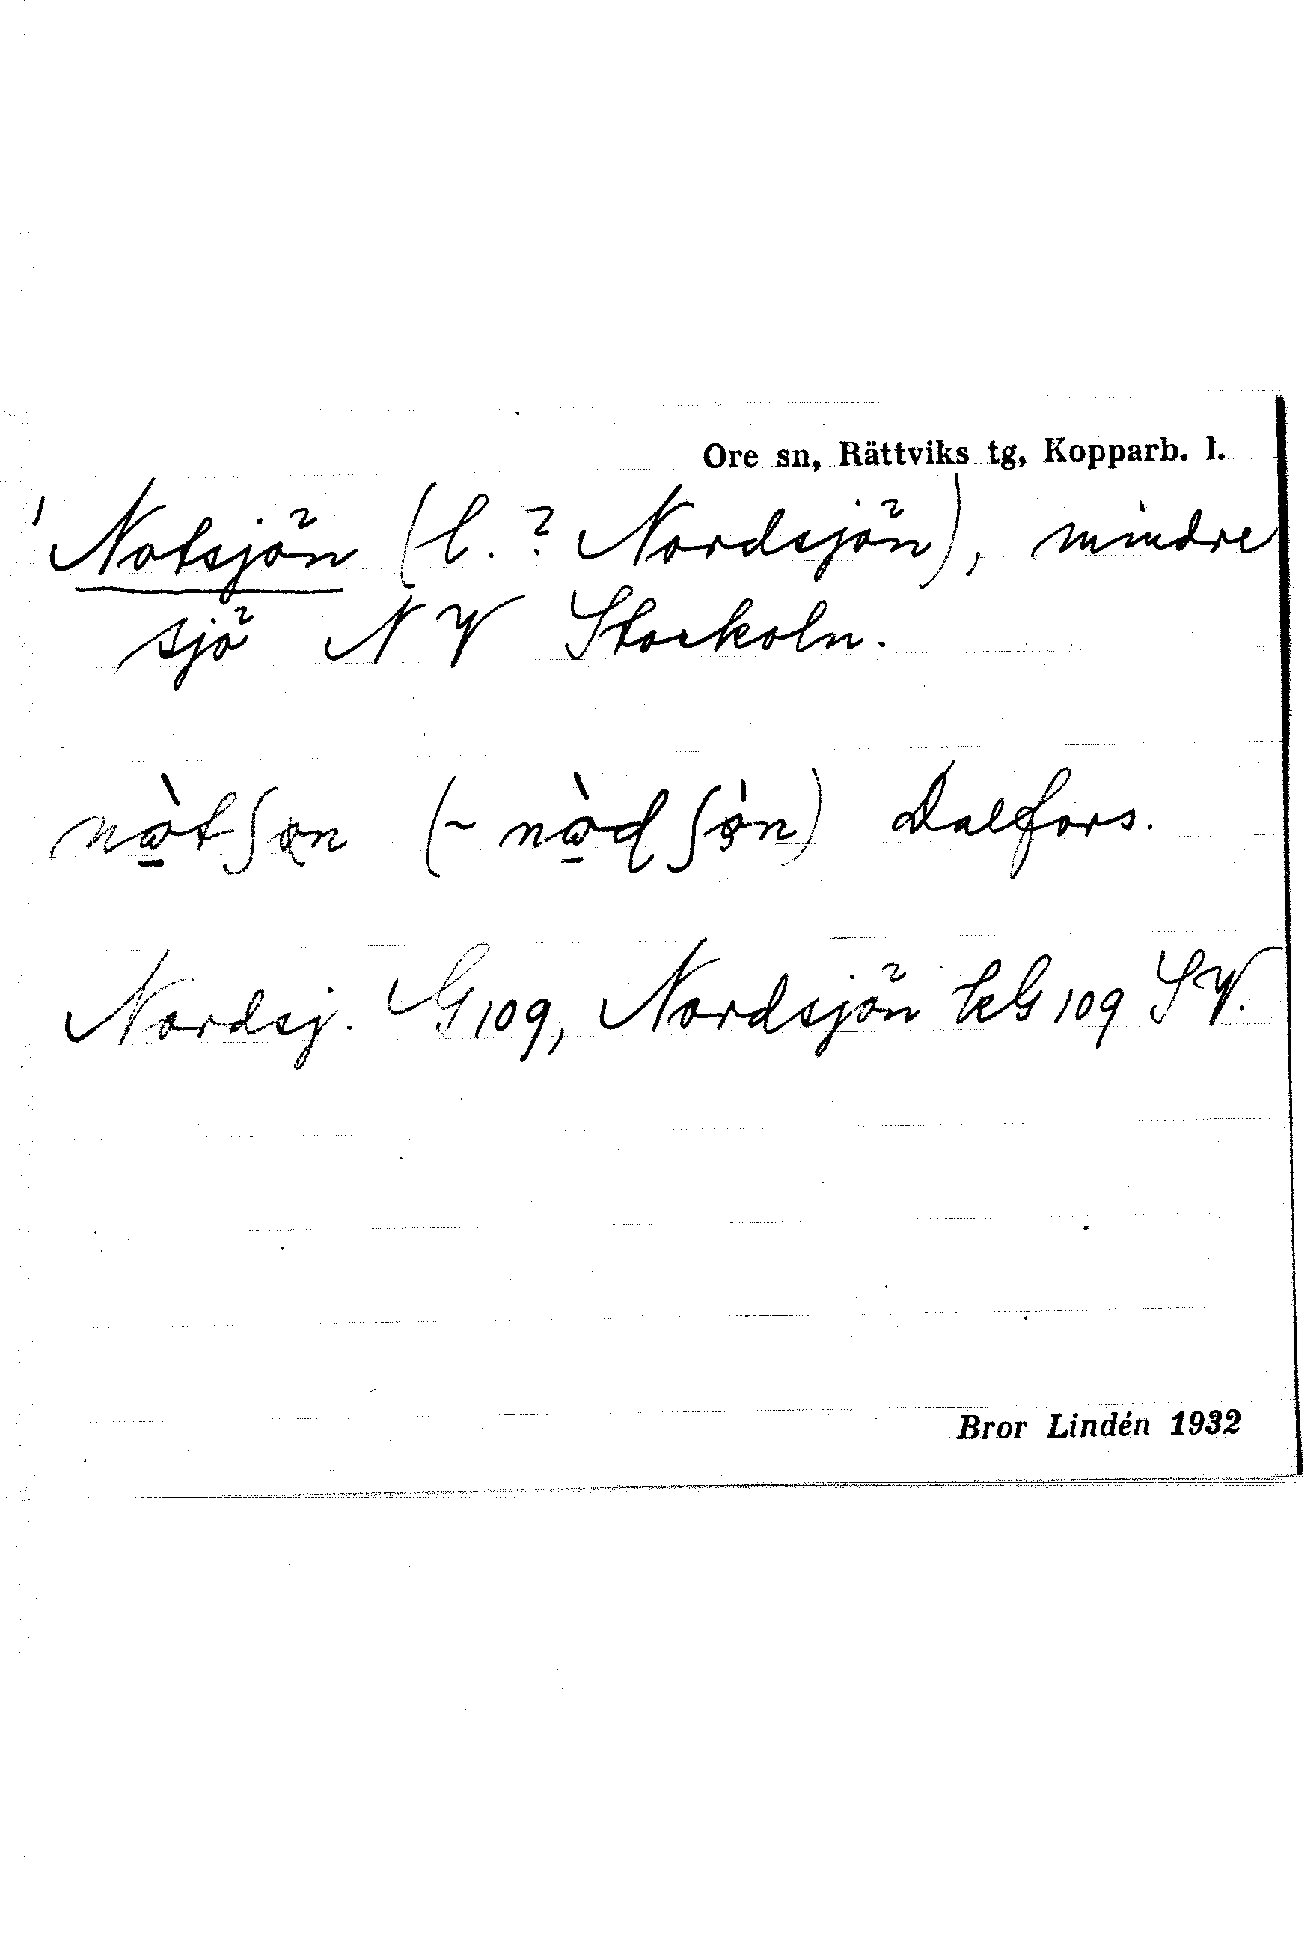 Ore sn, Rättviks tg, Kopparb. l.
Notsjön (l. ? Nordsjön), mindre
sjö NV Storkoln.
(~ ) Dalfors.
Nordsj. G109, Nordsjön kG109 SV.
Bror Lindén 1932